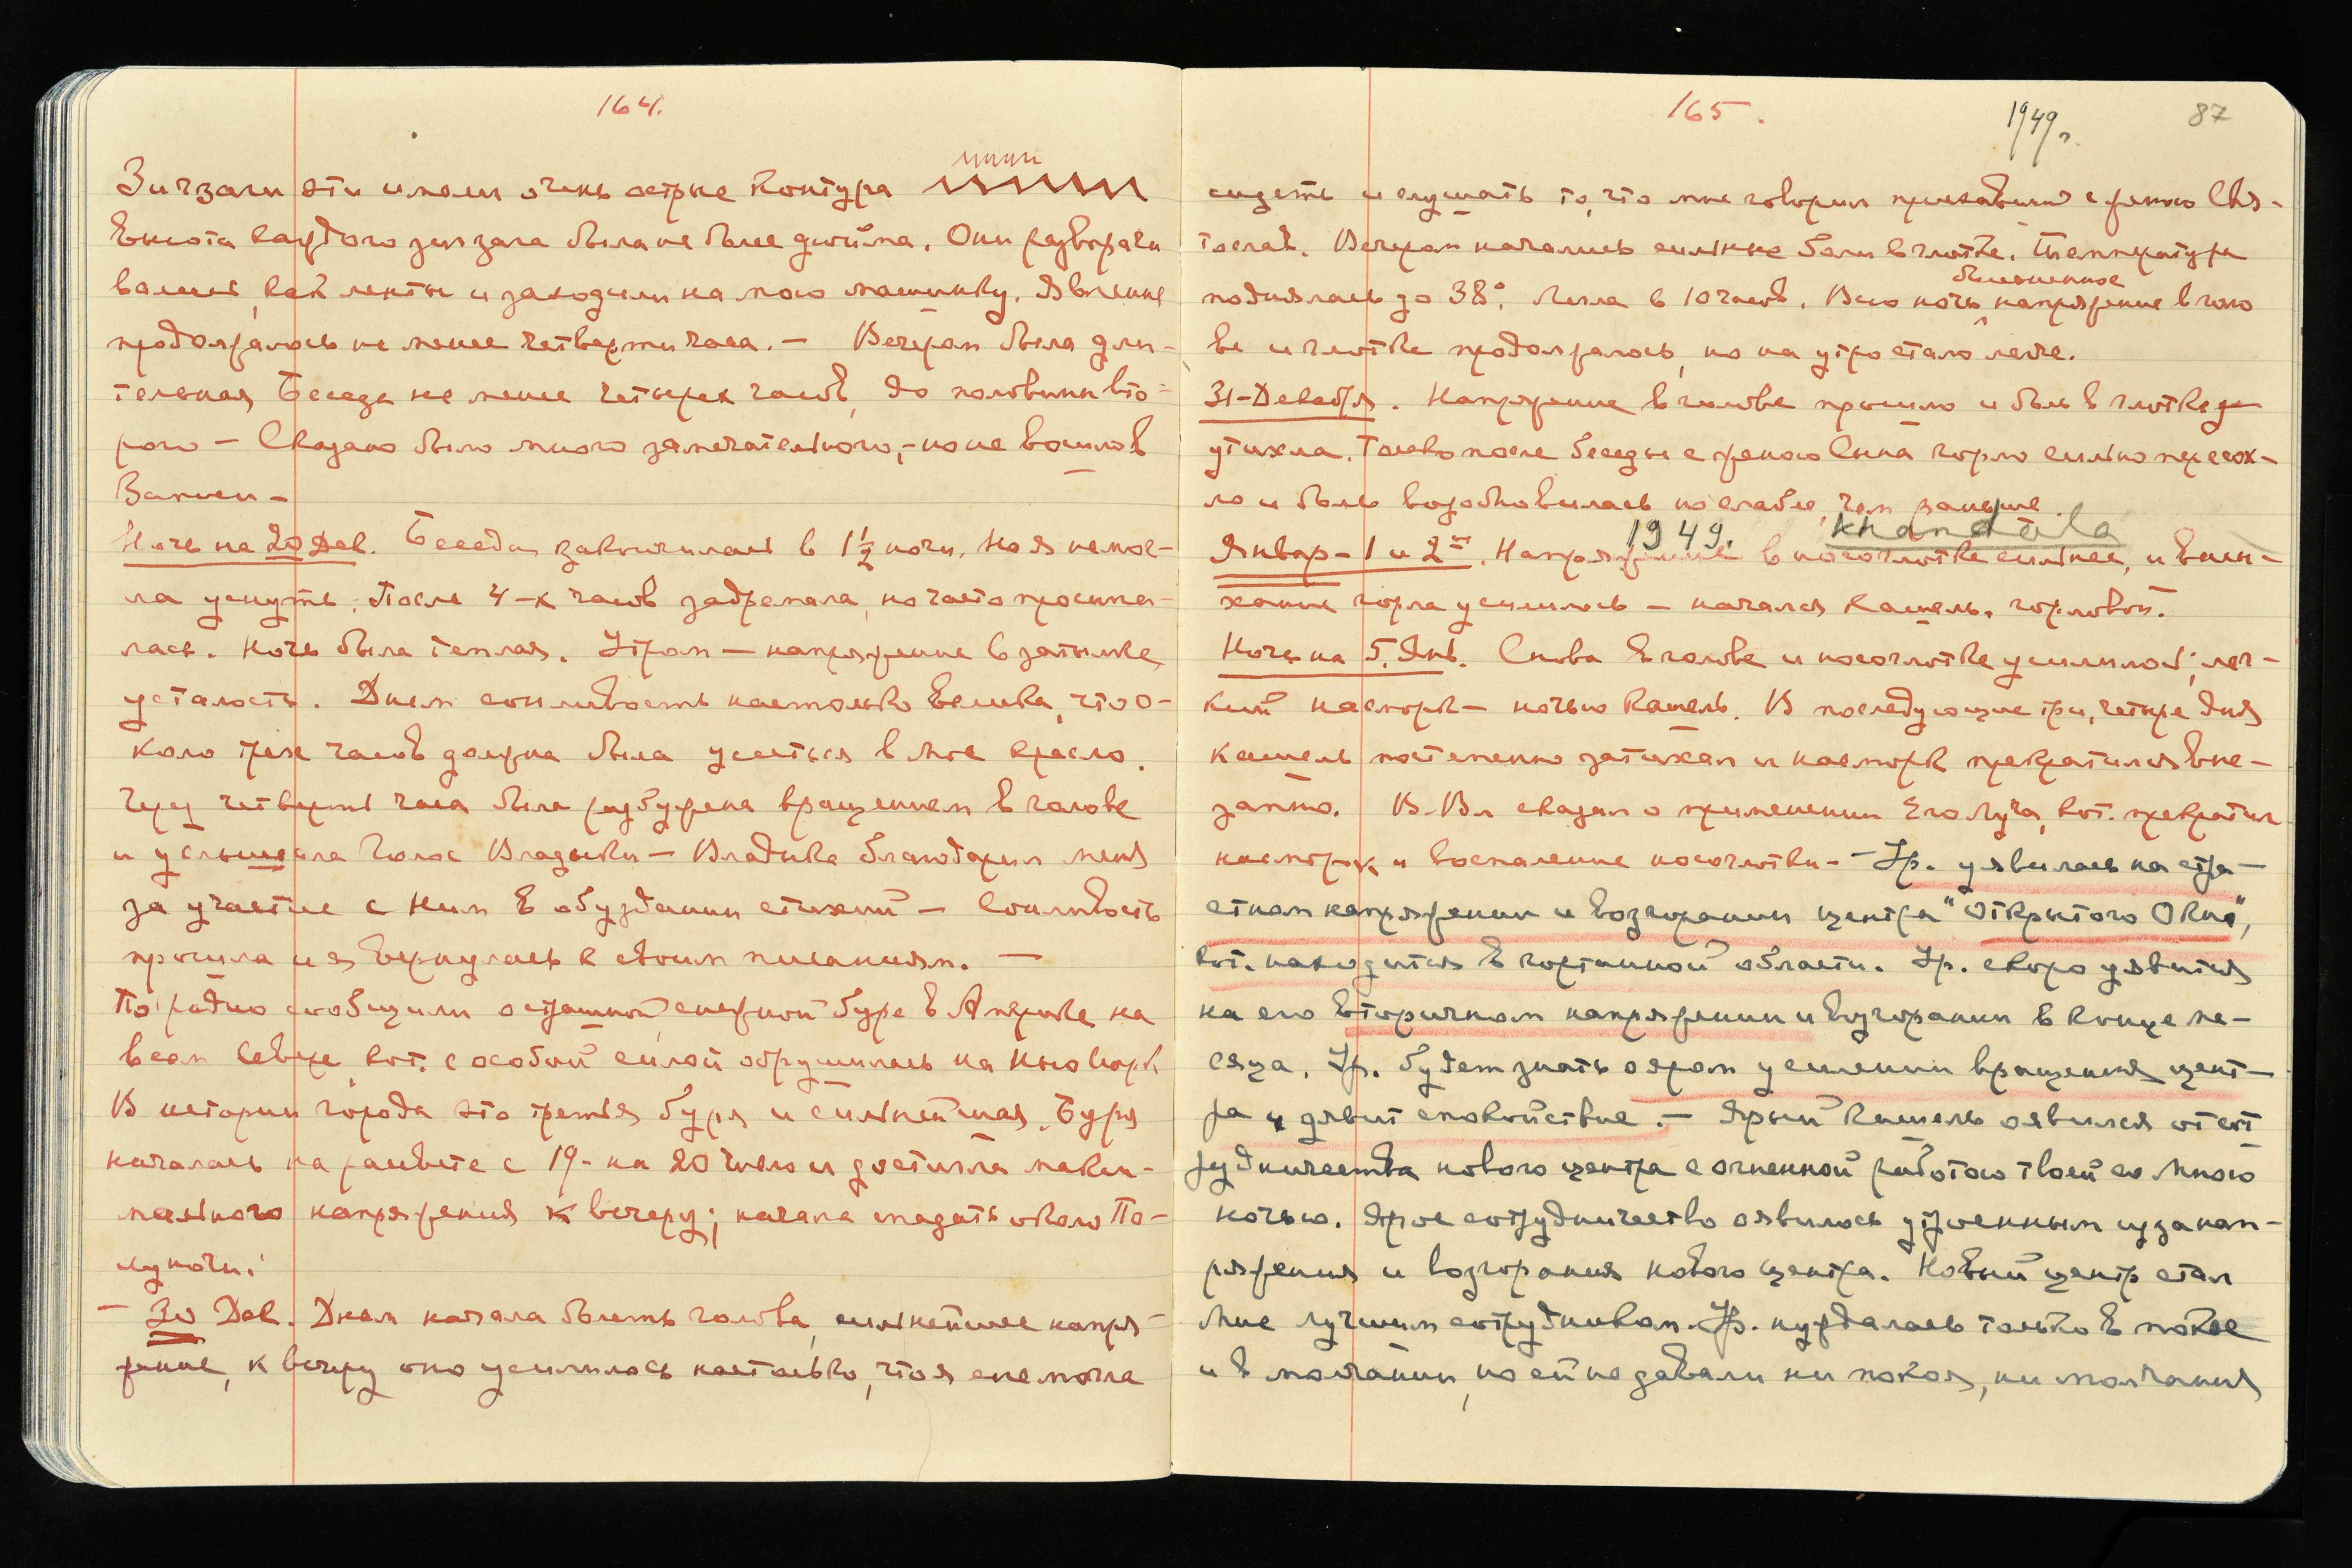 164.
Зигзаги эти имели очень острые контура
высота каждого зигзага была не более дюйма. Они разворачи
вались, как ленты и заходили на мою машинку. Явление
продолжалось не менее четверти часа. — Вечером была дли-
тельная Беседа не менее четырех часов, до половины вто-
рого — Сказано было много замечательного, — но не вошло в
Записи —
Ночь на 20 Дек. Беседа закончилась в 1½ ночи, но я не мог-
ла уснуть. После 4-х часов задремала, но часто просыпа-
лась. Ночь была теплая. Утром — напряжение в затылке,
усталость. Днем сонливость настолько велика, что о-
коло трех часов должна была усесться в мое кресло.
Через четверть часа была разбужена вращением в голове
и услышала Голос Владыки — Владыка благодарил меня
за участие с Ним в обуздании стихий — Сонливость
прошла и я вернулась к своим писаниям. —
По радио сообщили о страшной снежной буре в Америке на
всем Севере, кот. с особой силой обрушилась на Нью Иорк
В истории города это третья буря и сильнейшая. Буря
началась на рассвете с 19- на 20 число и достигла макси-
мального напряжения к вечеру; начала спадать около По-
луночи.
— 30 Дек. Днем начала болеть голова, сильнейшее напря-
жение, к вечеру оно усилилось настолько, что я не могла
165.
1949 г.
87
сидеть и слушать то, что мне говорил приехавший с женою Свя-
тослав. Вечером начались сильные боли в глотке. Температура
поднялась до 38°. Легла в 10 часов. Всю ночь болезненное напряжение в голо
ве и глотке продолжалось, но на утро стало легче.
31-Декабря. Напряжение в голове прошло и боль в глотке
утихла. Только после беседы с женою Сына горло сильно пересох-
ло и боль возобновилась но слабее, чем раньше.
1949. Khandala
Январ — 1 и 2ое. Напряжение в носоглотке сильнее, и высы-
хание горла усилилось — начался кашель горловой.
Ночь на 5. Янв. Снова в голове и носоглотке усилилось; лег-
кий насморк — ночью кашель. В последующие три, четыре дня
кашель постепенно затихал и насморк прекратился вне-
запно. В. Вл сказал о применении Его Луча, кот. прекратил
насморк и воспаление носоглотки — — Ур. уявилась на стра-
стном напряжении и возгорании центра "Открытого Окна",
кот. находится в гортанной области. Ур. скоро уявится
на его вторичном напряжении и возгорании в конце ме-
сяца. Ур. будет знать о яром усилении вращения цент-
ра и явит спокойствие. — Ярый кашель оявился от сот
рудничества нового центра с огненной работою твоей со Мною
ночью. Ярое сотрудничество оявилось утроенным из за нап-
ряжения и возгорания нового центра. Новый центр стал
Мне лучшим сотрудником. Ур. нуждалась только в покое
и в молчании, но ей не давали ни покоя, ни молчания